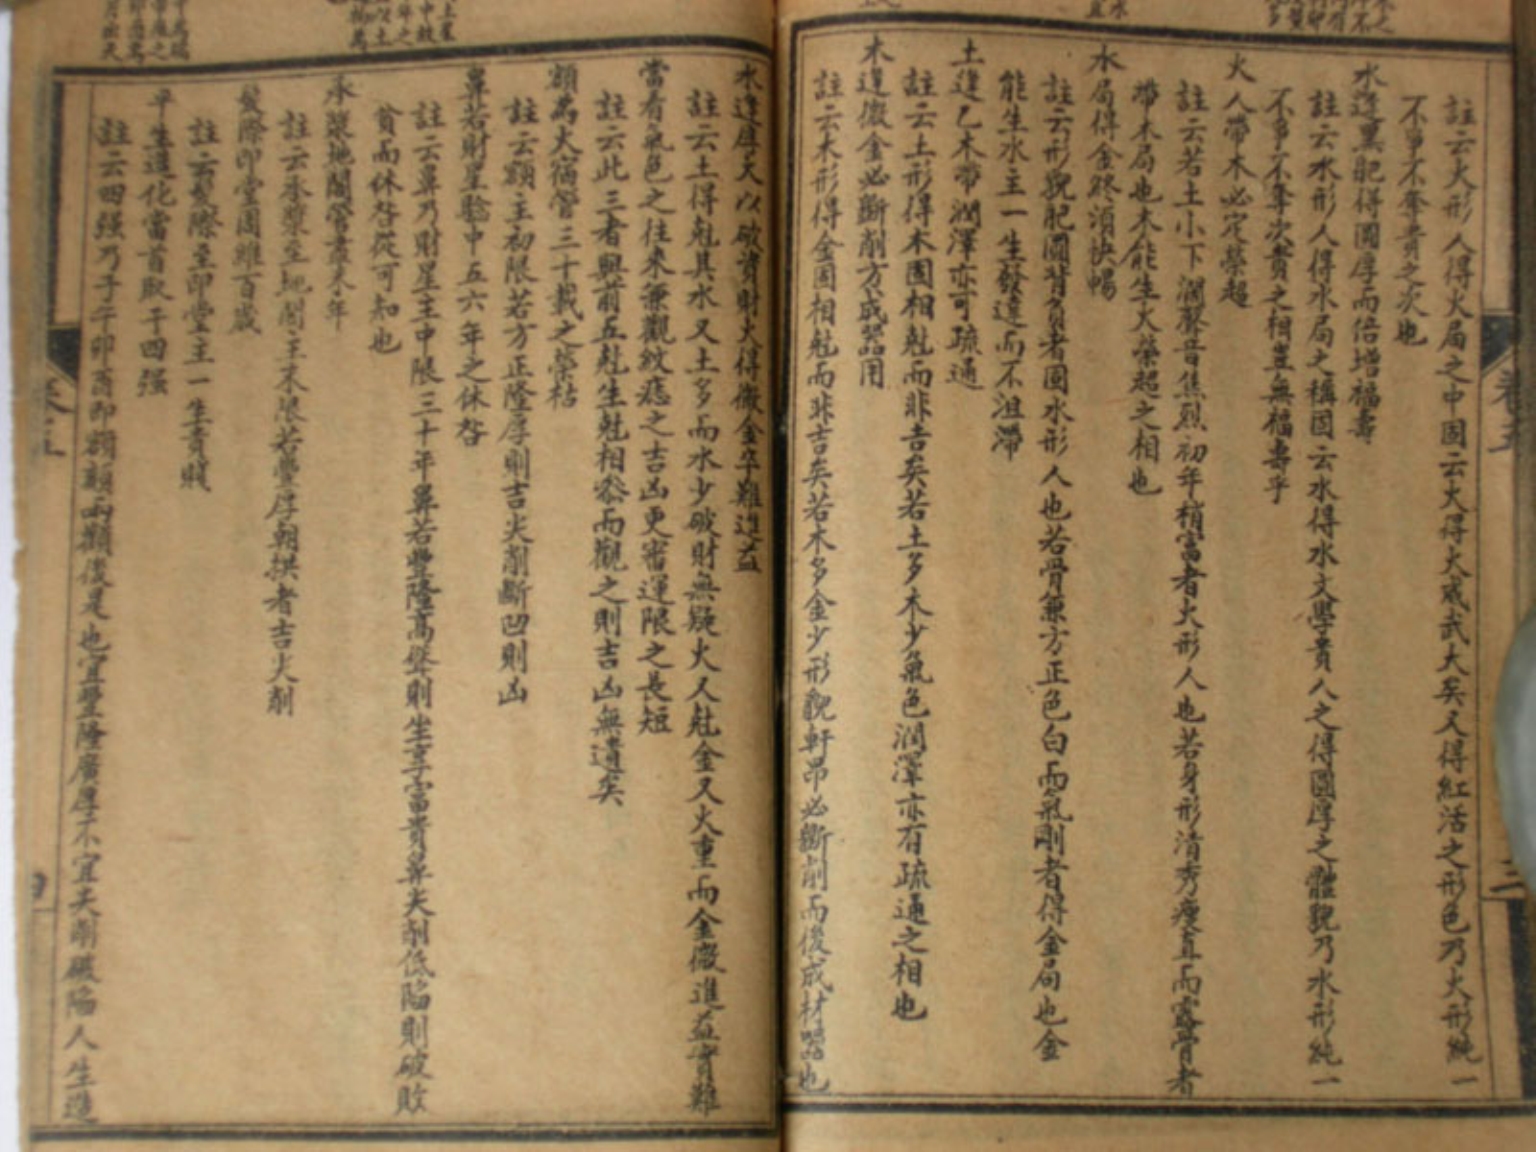 註云火形人得火局之中固云火得火威武大矣人得紅活之形色乃火形純一
不爭不奪貴之次也
水逢黑肥得圓厚而倍增福壽
註云水形人得水局大稱固云水得水文學貴人之得圓厚之體貌乃水形純一
不爭不奪次貴之相豈無福壽乎
火人帶木必定榮超
註云若土小下濶聲音焦烈初年稍富者火形人也若身形清秀瘦直而露骨者
帶木局也木能生火榮超之相也
水局得金終須快暢
註云形貌肥圓背負者固水形人也若骨兼方正色白而氣剛者得金局也金
能生水主一生發達而不沮滯
土逢乙木帶潤澤亦可疏通
註云土形得木固相尅而非吉矣若土多木少氣色潤澤亦有疏通之相也
木逢微金必斷削方成器用
註云木形得金固相尅而非吉矣若木多金少形貌軒昂必斷削而後成材器也
水逢厚天以破資財火得微金卒難進益
註云土得尅其水又土多而水少破財無疑火人尅金又火重而金微進益實難
當看氣色之往來兼觀紋痣之吉凶更審運限之長短
註云此三者與前五尅生尅相參而觀之則吉凶無遺矣
額為火宿管三十載之榮枯
註云額主初限若方正隆厚則吉尖削斷凹則凶
鼻若財星驗中五六年之休咎
註云鼻乃財星主中限三十年鼻若豐隆高聳則生享富貴鼻尖削低陷則破敗
貧而休咎從可知也
承漿地閣管盡末年
註云承漿至地閣主末限若豐厚朝拱者吉尖削
髮際印堂周維百歲
註云髮際至印堂主一生貴賤
平生造化當首取于四强
註云四强乃子午卯酉即額頦兩顴後是也宜豐隆廣厚不宜尖削破陷人生造
卷五
三